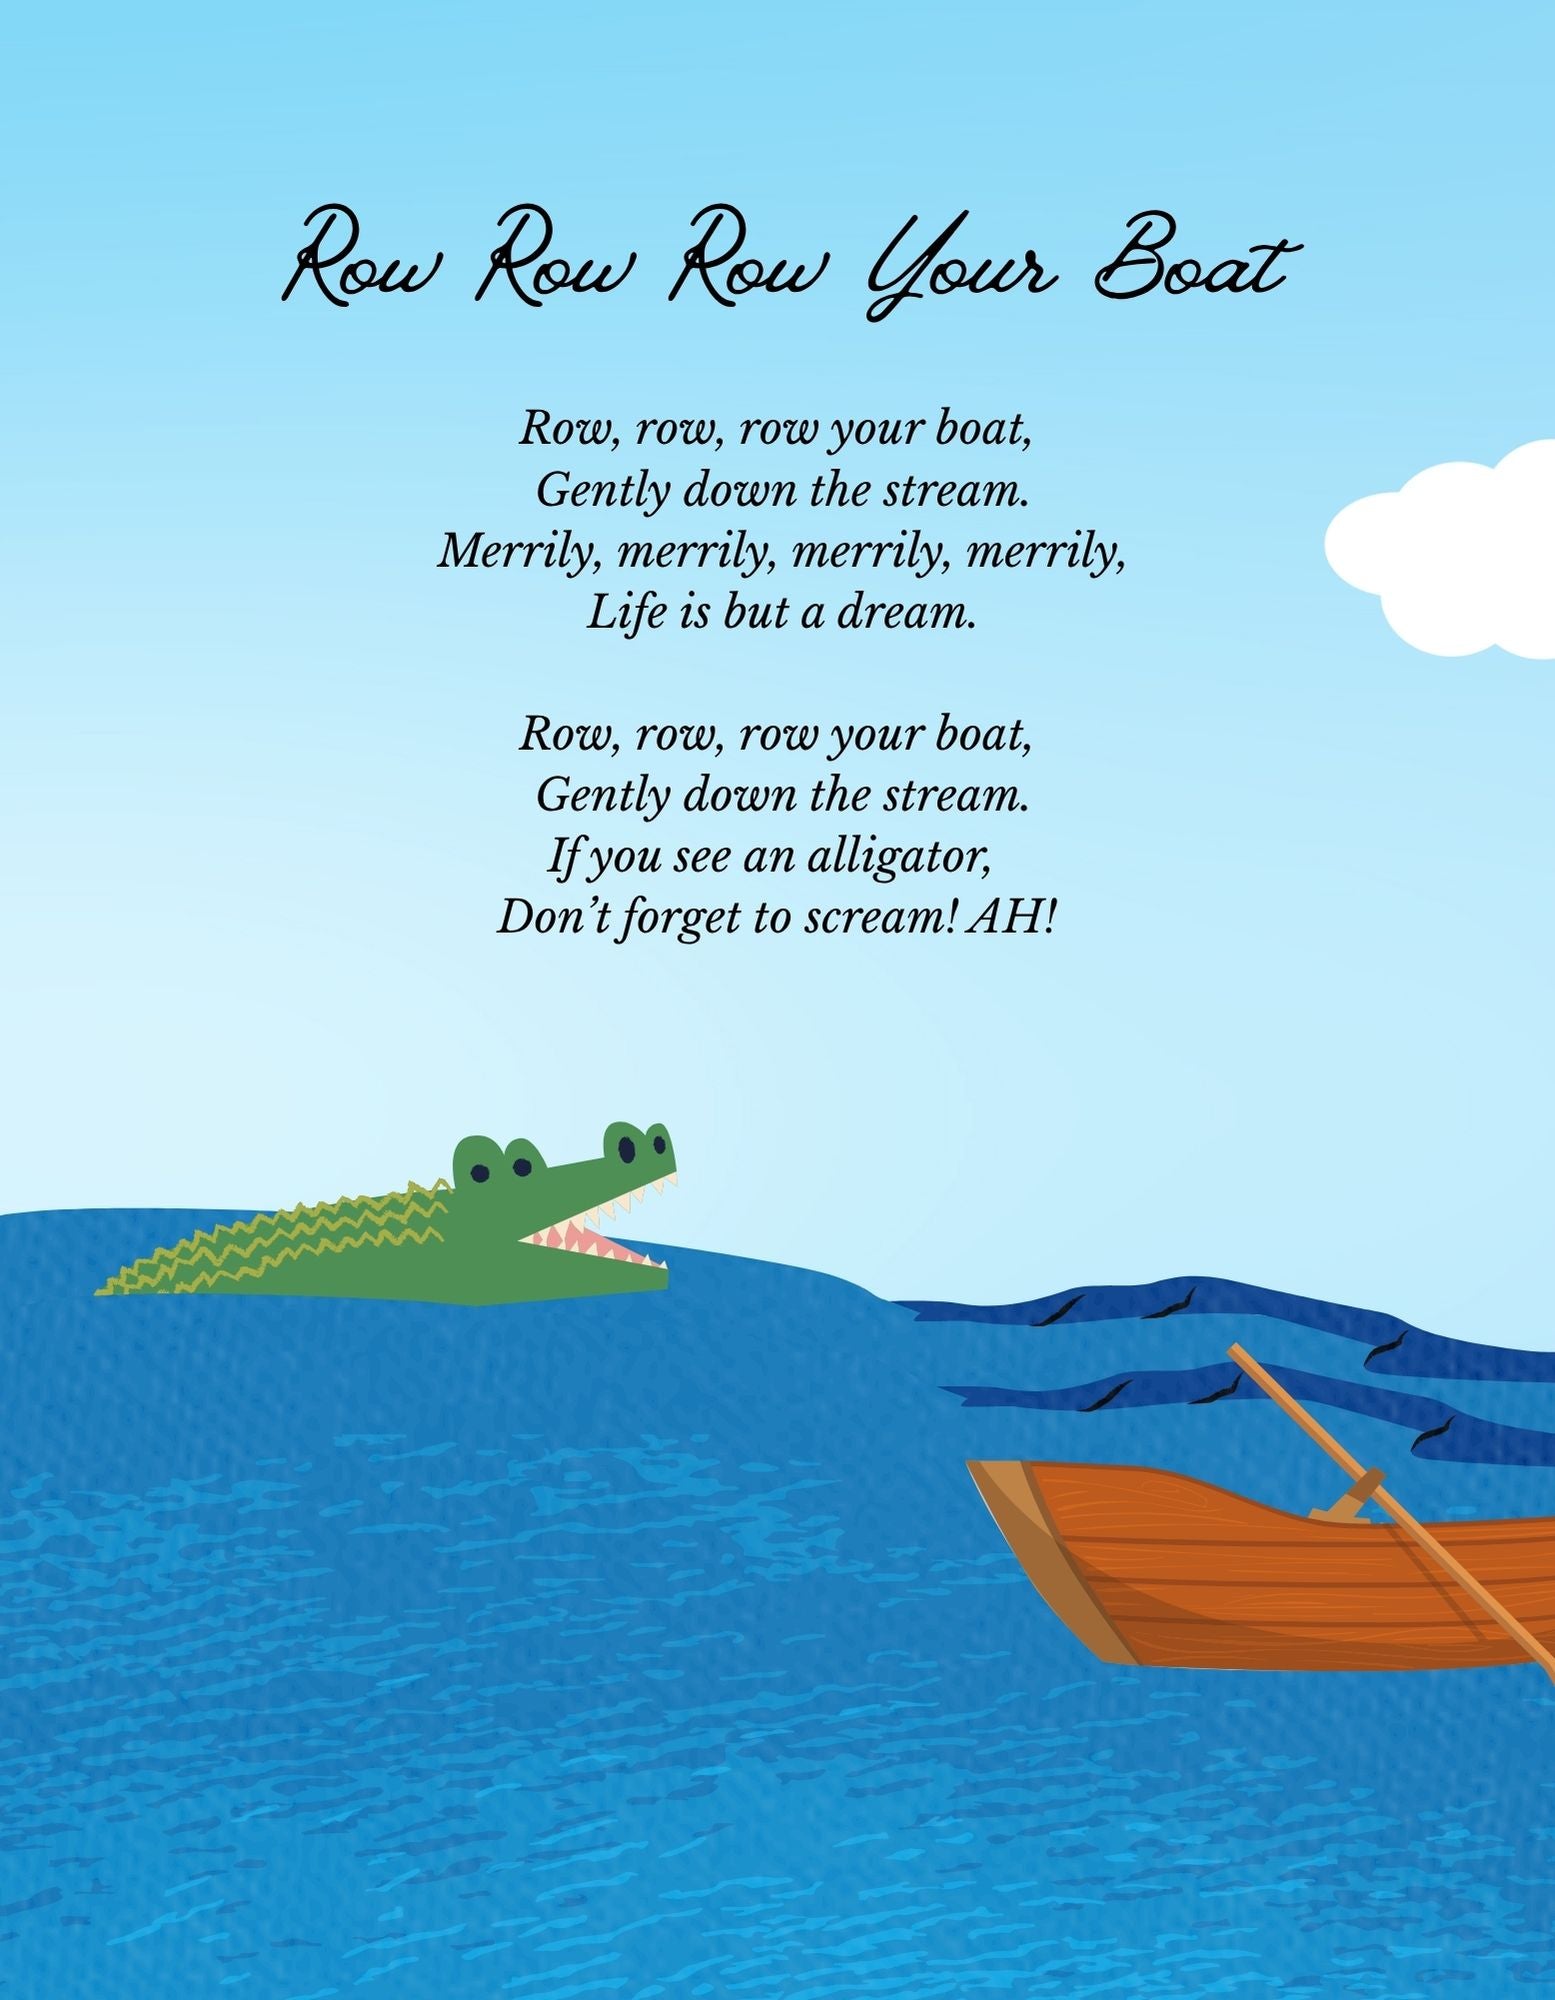 Row Row Row Your Boat
Row, row, row your boat,
Gently down the stream.
Merrily, merrily, merrily, merrily,
Life is but a dream.
Row, row, row your boat,
Gently down the stream.
If you see an alligator,
Don’t forget to scream! AH!